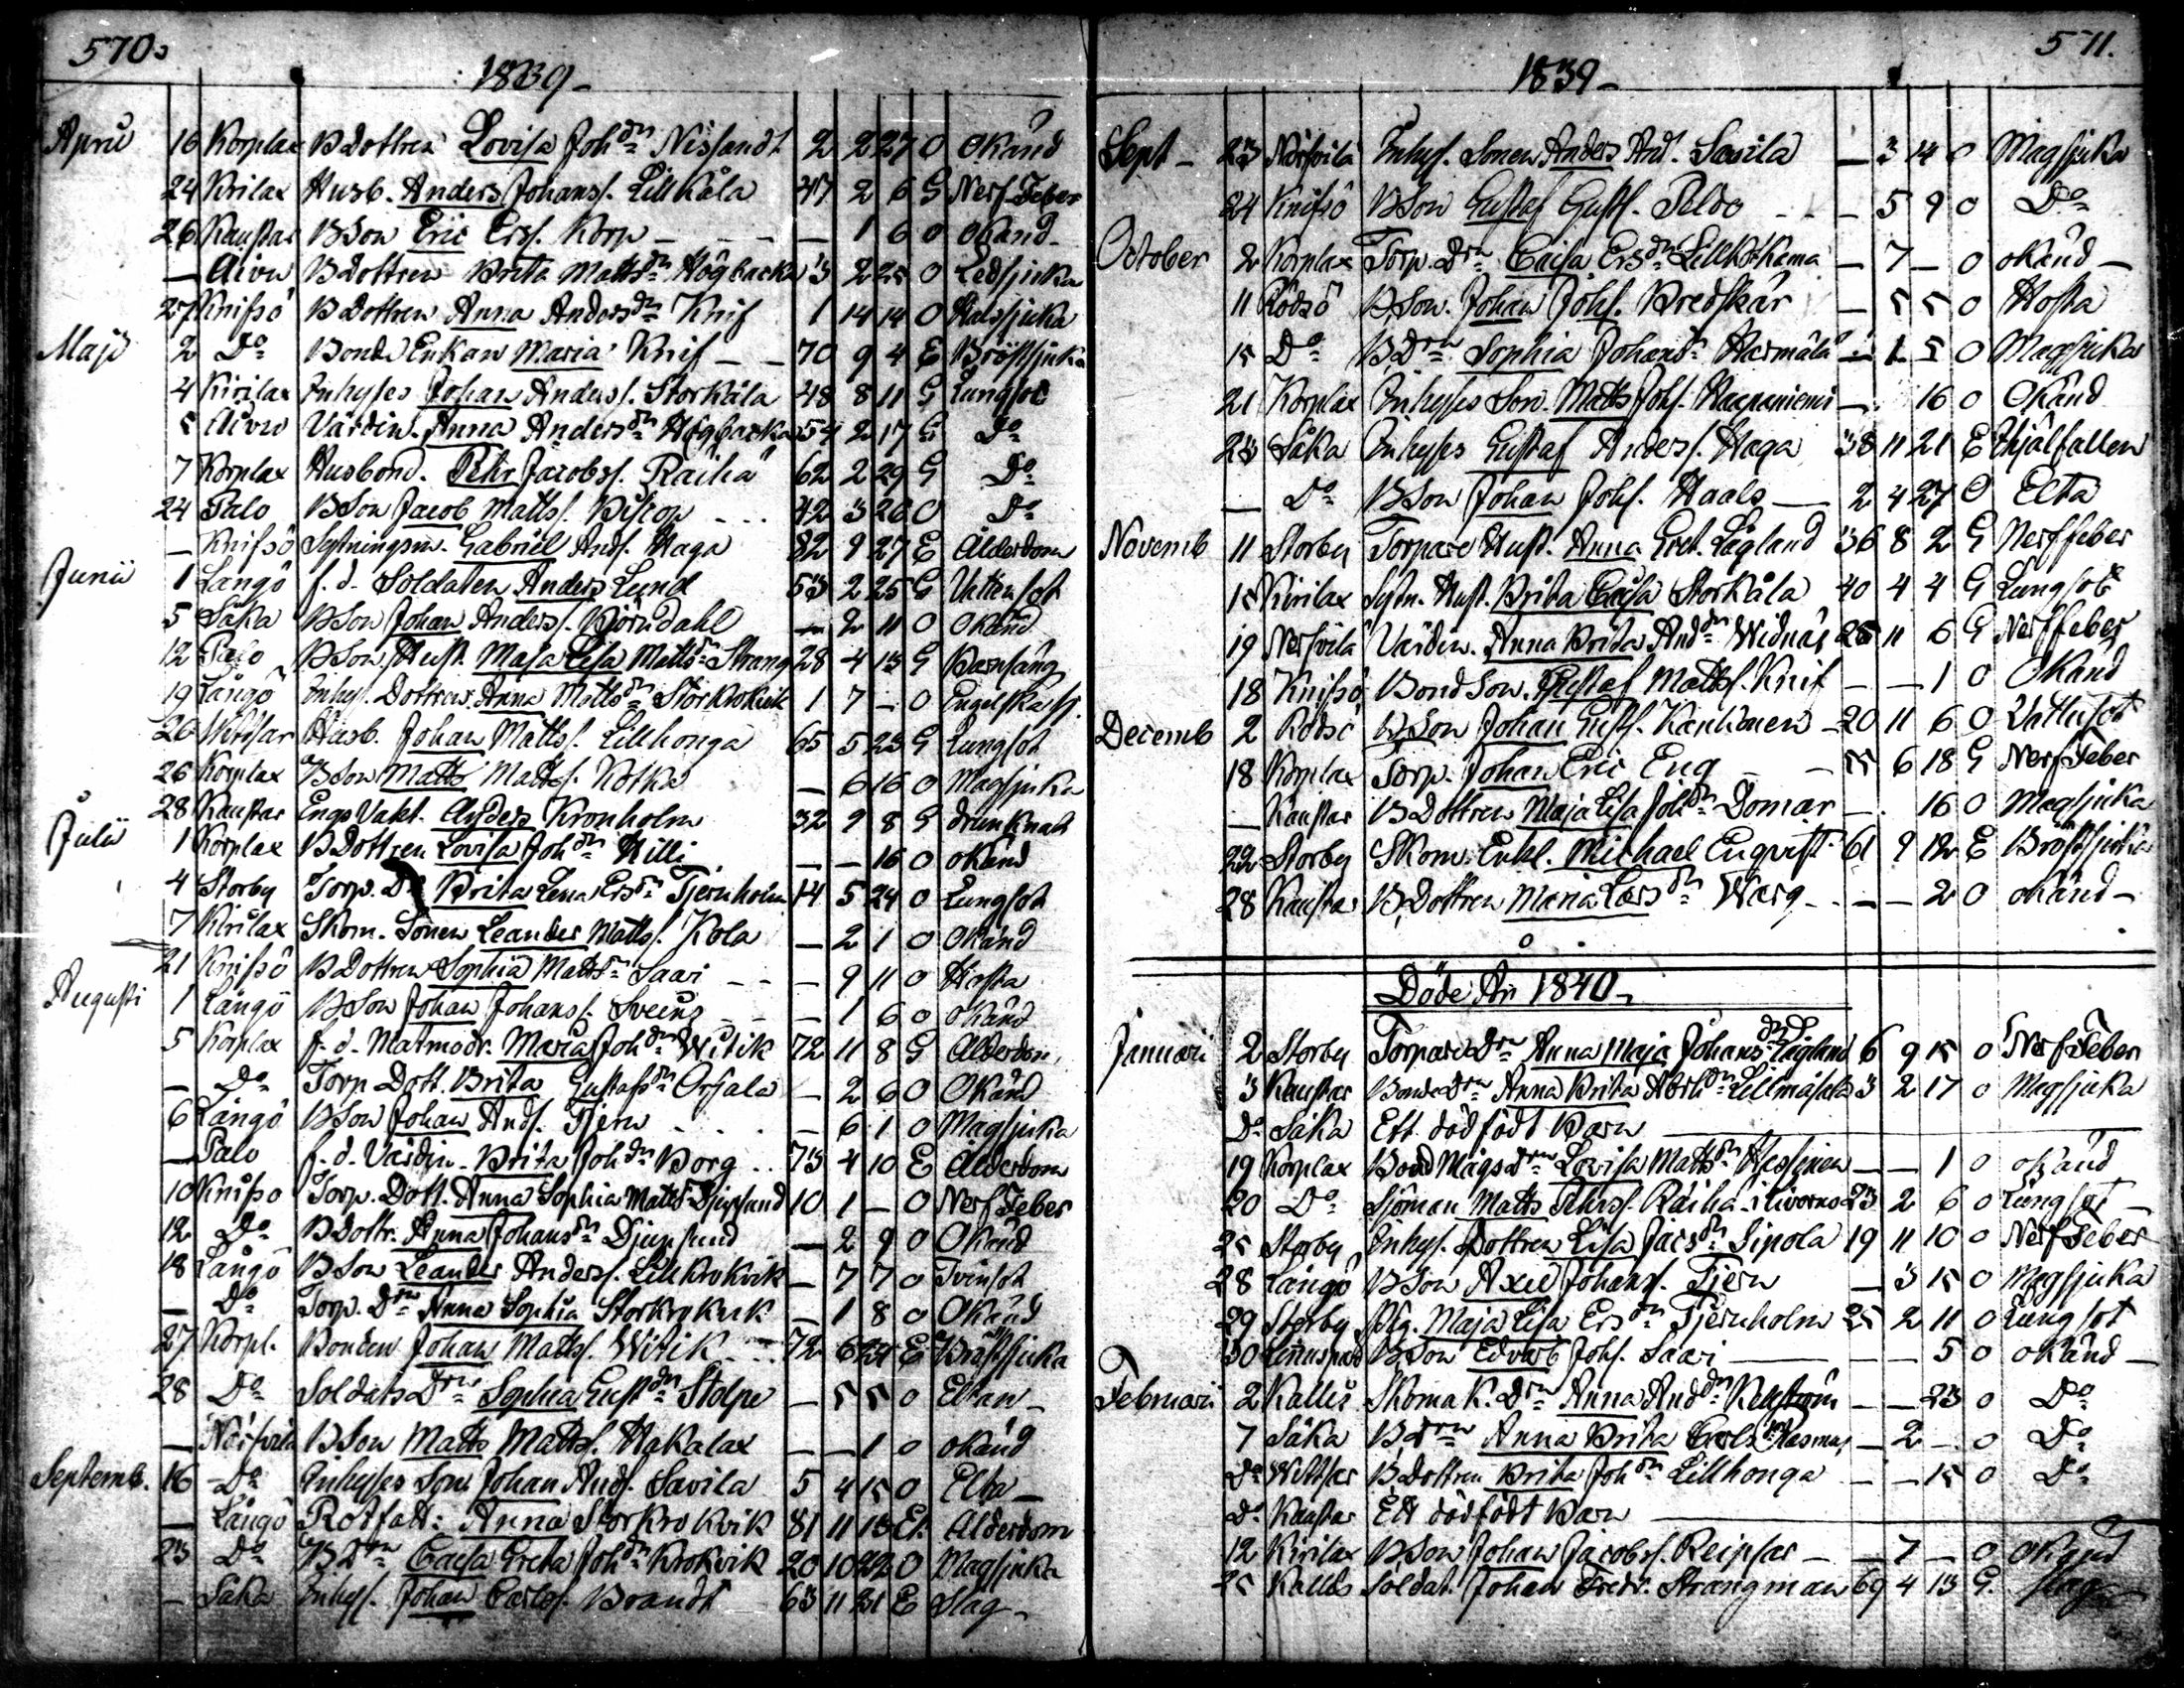 570.
1839
April 16 Korplax BDottren Lovisa Joh:dr Nissandt 2 2 27 O Okänd
24 Kirilax Husb. Anders Johanss. Lillkåla 47 2 6 G Nerf Feber
26 Kaustar BSon Eric Erss. Korp — 1 6 O Okänd
— BDottren Brita Matts dr Högbacka 3 2 25 O Ledsjuka
27 Knifsö BDottren Anna Anders dr Knif 1 14 14 O Halssjuka
Maji 2 Do Bonde Enkan Maria Knif 70 9 4 E Bröstsjuka
4 Kirilax Inhyses Johan Anderss. Storkåla 48 8 11 G Lungsot
5 Värdin. Anna Anders dr Högbacka 54 2 17 G Do
7 Korplax Husbond. Pehr Jacobss. Raiha 62 2 29 G Do
24 Palo BSon Jacob Matts. Biskop 42 3 26 O Do
— Knifsö Sytningsm. Gabriel Ands. Haga 82 9 27 E Ålderdom
Junii 1 Långö f.d. Soldaten Anders Lund 53 2 25 G Vattensot
5 Såka BSon Johan Anderss. Björndahl — 2 11 O Okänd
12 Palo BSon. Hust. Maja Lisa Matts dr Strang 28 4 13 G Barnsäng
19 Långö Inhys. Dottren Anna Matts dr Storkrokvik 1 7 — O Engelska sj.
20 Husb. Johan Matts. Lillhonga 65 5 23 G Lungsot
26 Korplax BSon Matts Matts. Kotka — 6 16 O Magsjuka
28 Kaustar Engs Vakt. Anders Kronholm 32 9 8 G drunknat
Julii 1 Korplax BDottren Lovisa Joh dr Killi — — 16 O okänd
4 Storby Torp. Dr Brita Lena Ers dr Tjernholm 14 5 24 O Lungsot
7 Kirilax Skom. Sonen Leander Matts. Kola — 2 1 O Okänd
21 Knifsö BDottren Sophia Matts dr Saari — 9 11 O Hosta
Augusti 1 Långö BSon Johan Johanss. Svens — 1 6 O Okänd
5 Korplax f.d. Matmodr. Maria Joh dr Witik 72 11 8 G Ålderdom
— Do Torp Dott. Brita Gustafs dr Orjala — 2 6 O Okänd
6 Långö BSon Johan Ands. Tjern — 6 1 O Magsjuka
— Palo f.d. Värdin. Brita Joh dr Borg 73 4 10 E Ålderdom
10 Knifsö Torp. Dott. Anna Sophia Matts dr Djupsund 10 1 — O Nerf Feber
12 Do BDottr. Anna Johans dr Djupsund — 2 9 O Okänd
18 Långö BSon Leander Anderss. Lillkrokvik — 7 7 O Tvinsot
— Do Torp. Drn Anna Sophia Storkrokvik — 1 8 O Okänd
27 Korpl. Bonden Johan Matts. Witik 72 6 24 E Bröstsjuka
28 Do Soldats Drn Sophia Gust dr Stolpe — 5 5 O Eltan
— BSon Matts Matts. Hakalax — — 1 O okänd
Septemb. 16 Do Inhyses Son Johan Ands. Savila 5 4 15 O Elta
— Långö Rotfatt: Anna Storkrokvik 81 11 13 E. Ålderdom
23 Do BDrn Caisa Greta Joh dr Krokvik 20 10 22 O Magsjuka
— Såka Inhys. Johan Carlss. Brandt 63 11 21 E Slag
571.
1839
Sept 23 Inhys. Sonen Anders And. Savila — 3 14 O Magsjuka
24 Knifsö BSon Gustaf Gusts. Peldo — 5 9 O Do
October 2 Korplax Torp. Drn Caisa Ers dr Lillkotkama — 7 — O okänd
11 Rödsö BSon. Johan Johs. Bredskär — 5 5 O Hosta
15 Do BDrn Sophia Johans dr Harmälä — 1 5 O Magsjuka
21 Korplax Inhyses Son. Matts Johs. Haapaniemi — 16 O Okänd
23 Såka Inhyses Gustaf Anderss. Haga 38 11 21 E Ihjälfallen
— Do BSon Johan Johs. Haals 2 4 27 O Elta
Novemb 11 Storby Torpare Hust. Anna Gret. Lågland 36 8 2 G Nerffeber
15 Kirilax Sytn. Hust. Brita Caisa Storkåla 40 4 4 G Lungsot
19 Värdin. Anna Brita And dr Widnäs 25 11 6 G Nerffeber
18 Knifsö BondSon. Gustaf Matts. Knif — — 1 O Okänd
Decemb 2 Rödsö BSon Johan Gusts. Kankonen 20 11 6 O Vattusot
18 Korplax Torp. Johan Eric Eng 55 6 18 G Nerf Feber
— Kaustar BDottren Maja Lisa Joh dr Domar — 16 O Magsjuka
22 Storby Skom. Enkl. Michael Enqvist 61 9 12 E Bröstsjuka
28 Kaustar BDottren Maria Lars dr Warg — — 2 O okänd
Döde År 1840
Januari 2 Storby Torpare Drn Anna Maja Johans dr Lågland 6 9 15 O Nerf Feber
3 Kaustar Bonde Drn Anna Brita Abrh dr Lillmåsala 3 2 17 O Magsjuka
Do Såka Ett dödfödt Barn
19 Korplax Bond Mågs Drn Lovisa Matts dr Hessinen — — 1 O okänd
20 Do Sjöman Matts Pehrss. Räihä i Livorno 23 2 6 O Lungsot
25 Storby Inhys. Dottren Lisa Jacs dr Sipola 19 11 10 O Nerf Feber
28 Långö BSon Axel Johans. Tjern — 3 15 O Magsjuka
29 Storby Pig. Maja Lisa Ers dr Tjernholm 25 2 11 O Lungsot
30 BSon Edvard Johs. Saari — — 5 O okänd
Februari 2 Kallis Skomak. Drn Anna And dr — — 23 O Do
7 Såka BDrn Anna Brita Carls dr Rasmus — 2 — O Do
Do BDottren Brita Joh dr Lillhonga — — 15 O Do
Do Kaustar Ett dödfödt Barn
12 Kirilax BSon Johan Jacobss. Reipsar — 7 — O Okänd
25 Kallis Soldat. Johan Fredr. Strangman 69 4 13 G. Slag